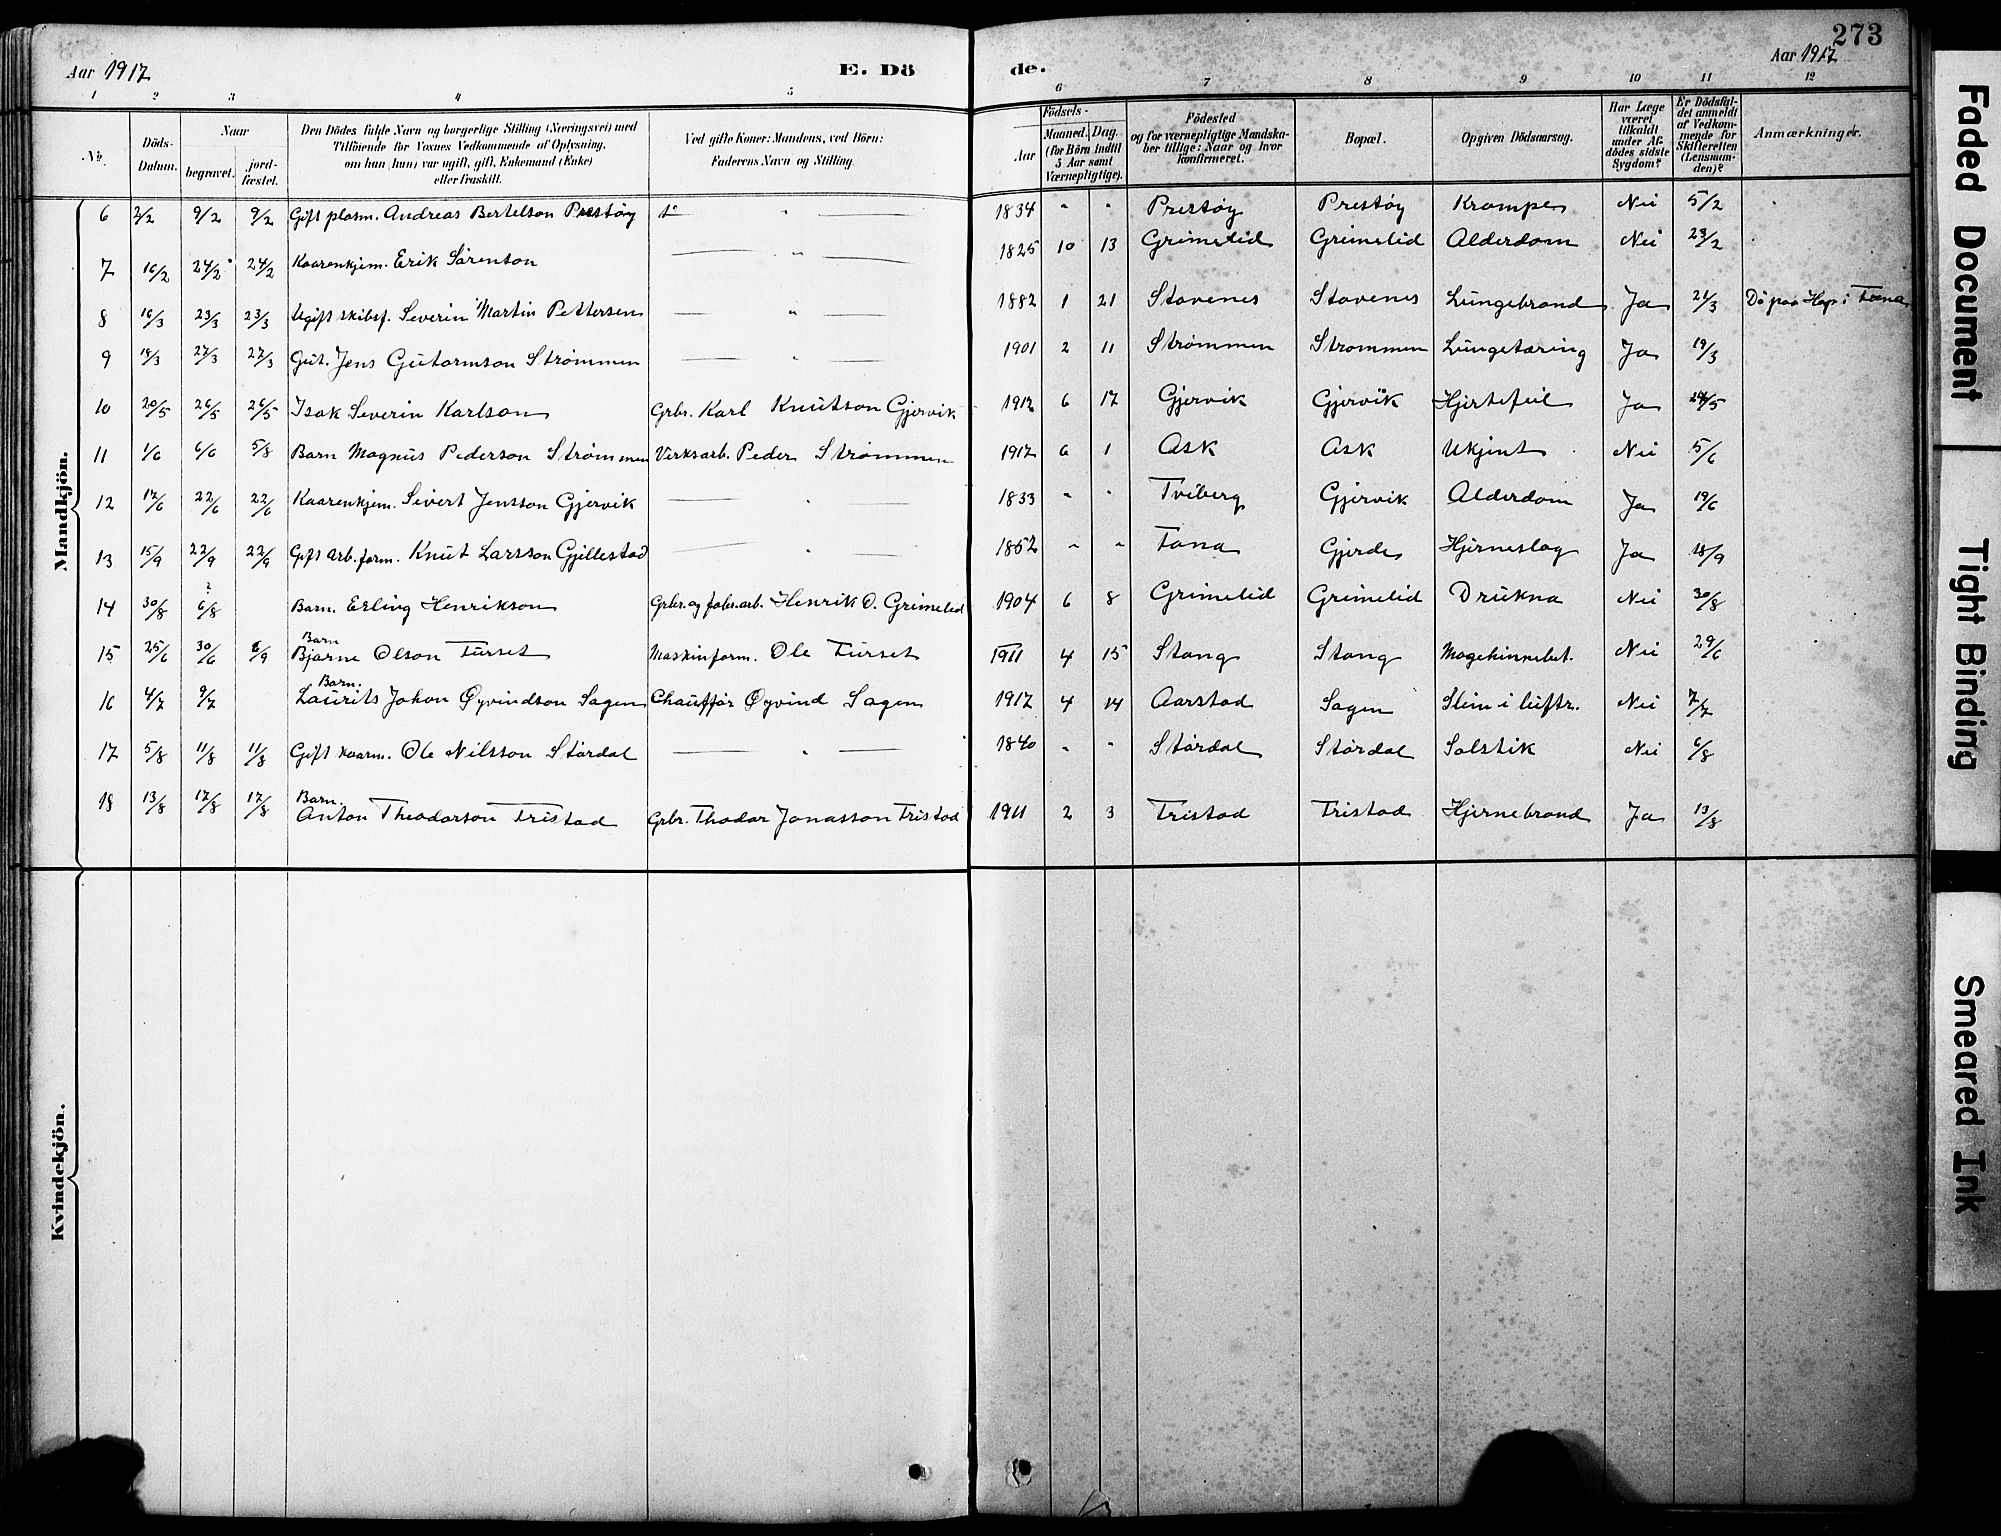 273
Aar 1917 E. Dö de. Aar 1917
1 2 3 4 5 6 7 8 9 10 11 12
Nr. Döds-Datum. Naar begravet. jord-fæstet. Den Dödes fulde Navn og borgerlige Stilling (Næringsvei) med Tilföiende for Voxnes Vedkommende af Oplysning, om han (hun) var ugift, gift, Enkemand (Enke) eller fraskilt. Ved gifte Koner: Mandens, ved Börn: Faderens Navn og Stilling. Födsels- Aar Maaned. Dag. (for Börn indtil 5 Aar samt Værnepligtige). Födested og for værnepligtige Mandska-ber tillige: Naar og hvor konfirmeret. Bopæl. Opgiven Dödsaarsag. Har Læge været tilkaldt under Af-dödes sidste Sygdom? Er Dödsfal-det anmeldt af Vedkom-mende for Skifteretten (Lensman-den)? Anmærkninger.
Mandkjön.
6 2/2 9/2 9/2 Gift plasm. Andreas Bertelson Prestøy " 1834 " " Prestøy Prestøy Krampe Nei 5/2
7 16/2 24/2 24/2 Kaarenkjem. Erik Sørenson 1825 10 13 Grimelid Grimelid Alderdom Nei 23/2
8 16/3 23/3 23/3 Ugift skibsf. Severin Martin Pettersen " 1882 1 21 Stavenes Stavenes Lungebrand Ja 21/3 Dö paa Hop i Fana
9 18/3 27/3 27/3 Gut. Jens Gutormson Strømmen " 1901 2 11 Strømmen Strømmen Lungetæring Ja 19/3
10 20/5 26/5 26/5 Isak Severin Karlson Grbr. Karl Knutson Gjervik 1912 6 17 Gjervik Gjervik Hjertefeil Ja 24/5
11 1/6 6/6 5/8 Barn Magnus Pederson Strømmen Verksarb. Peder Strømmen 1917 6 1 Ask Ask Ukjent Nei 5/6
12 17/6 22/6 22/6 Kaarenkjem. Sivert Jensson Gjervik " 1833 " " Tviberg Gjervik Alderdom Ja 19/6
13 15/9 22/9 22/9 Gift arb.form. Knut Larsson Gjillestad " 1852 " " Fana Gjerde Hjerneslag Ja 18/9
14 30/8 6/8 ? Barn. Erling Henrikson Grbr. og fabr.arb. Henrik O. Grimelid 1904 6 8 Grimelid Grimelid Drukna Nei 30/8
15 25/6 30/6 8/9 Barn Bjarne Olson Furset Maskinform. Ole Furset 1911 4 15 Stang Stang Magehinnebet. Nei 29/6
16 4/7 9/7 Barn. Laurits Johan Øyvindson Sagen Chauffør Øyvind Sagen 1917 4 14 Aarstad Sagen Slim i luftr. Nei 7/7
17 5/8 11/8 11/8 Gift kaarm. Ole Nilsson Stårdal " 1840 " " Stårdal Stårdal Solstik Nei 6/8
18 13/8 17/8 17/8 Barn. Anton Theodorson Tristad Grbr. Thodor Jonasson Tristad 1911 2 3 Tristad Tristad Hjernebrand Ja 13/8
Kvindekjön.
Faded Document
Tight Binding
Smeared Ink